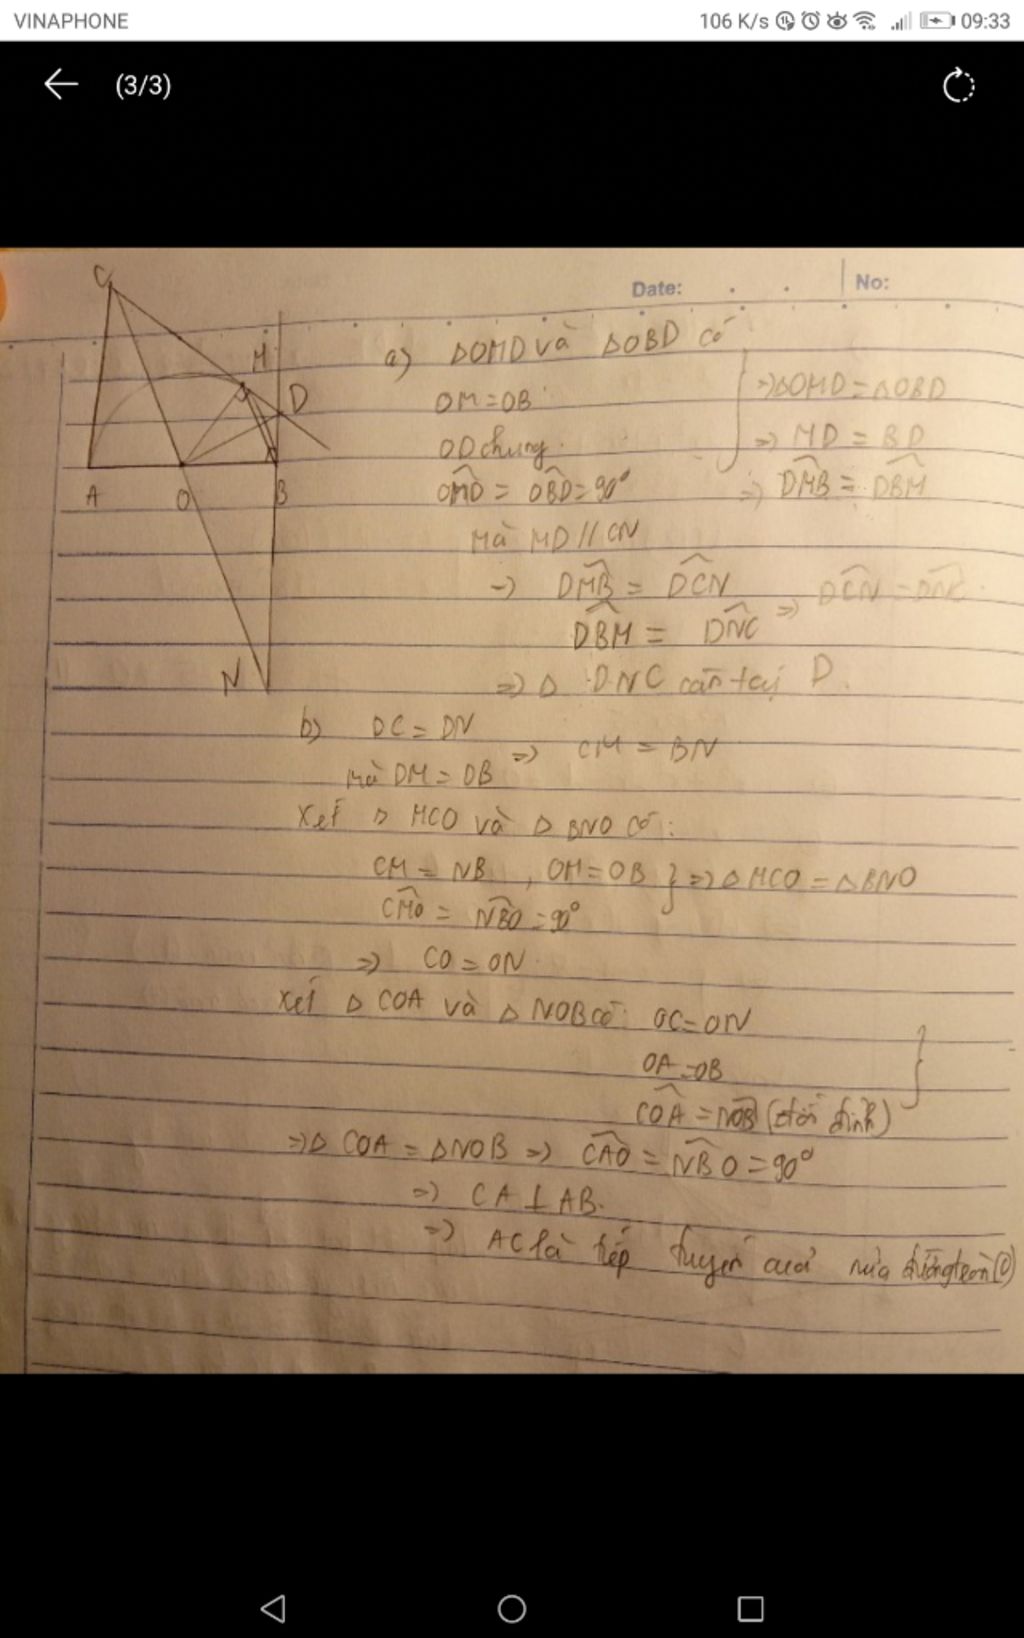 VINAPHONE
106 K/s 09:33
(3/3)
Date: No:
C
M
D
A O B
N
a) ΔOMD và ΔOBD có
OM = OB
OD chung.
\widehat{OMD} = \widehat{OBD} = 90°
=> ΔOMD = ΔOBD
=> MD = BD
=> \widehat{DMB} = \widehat{DBM}
Mà MD // CN
=> \widehat{DMB} = \widehat{DCN}
\widehat{DBM} = \widehat{DNC}
=> \widehat{DCN} = \widehat{DNC}.
=> Δ DNC cân tại D.
b) DC = DN
Mà DM = DB => CM = BN
Xét Δ MCO và Δ BNO có:
CM = NB, OM = OB } => Δ MCO = Δ BNO
\widehat{CMO} = \widehat{NBO} = 90°
=> CO = ON
Xét Δ COA và Δ NOB có: OC = ON
OA = OB
\widehat{COA} = \widehat{NOB} (đối đỉnh) }
=> Δ COA = Δ NOB => \widehat{CAO} = \widehat{NBO} = 90°
=> CA ⊥ AB.
=> AC là tiếp tuyến của nửa đường tròn (O)